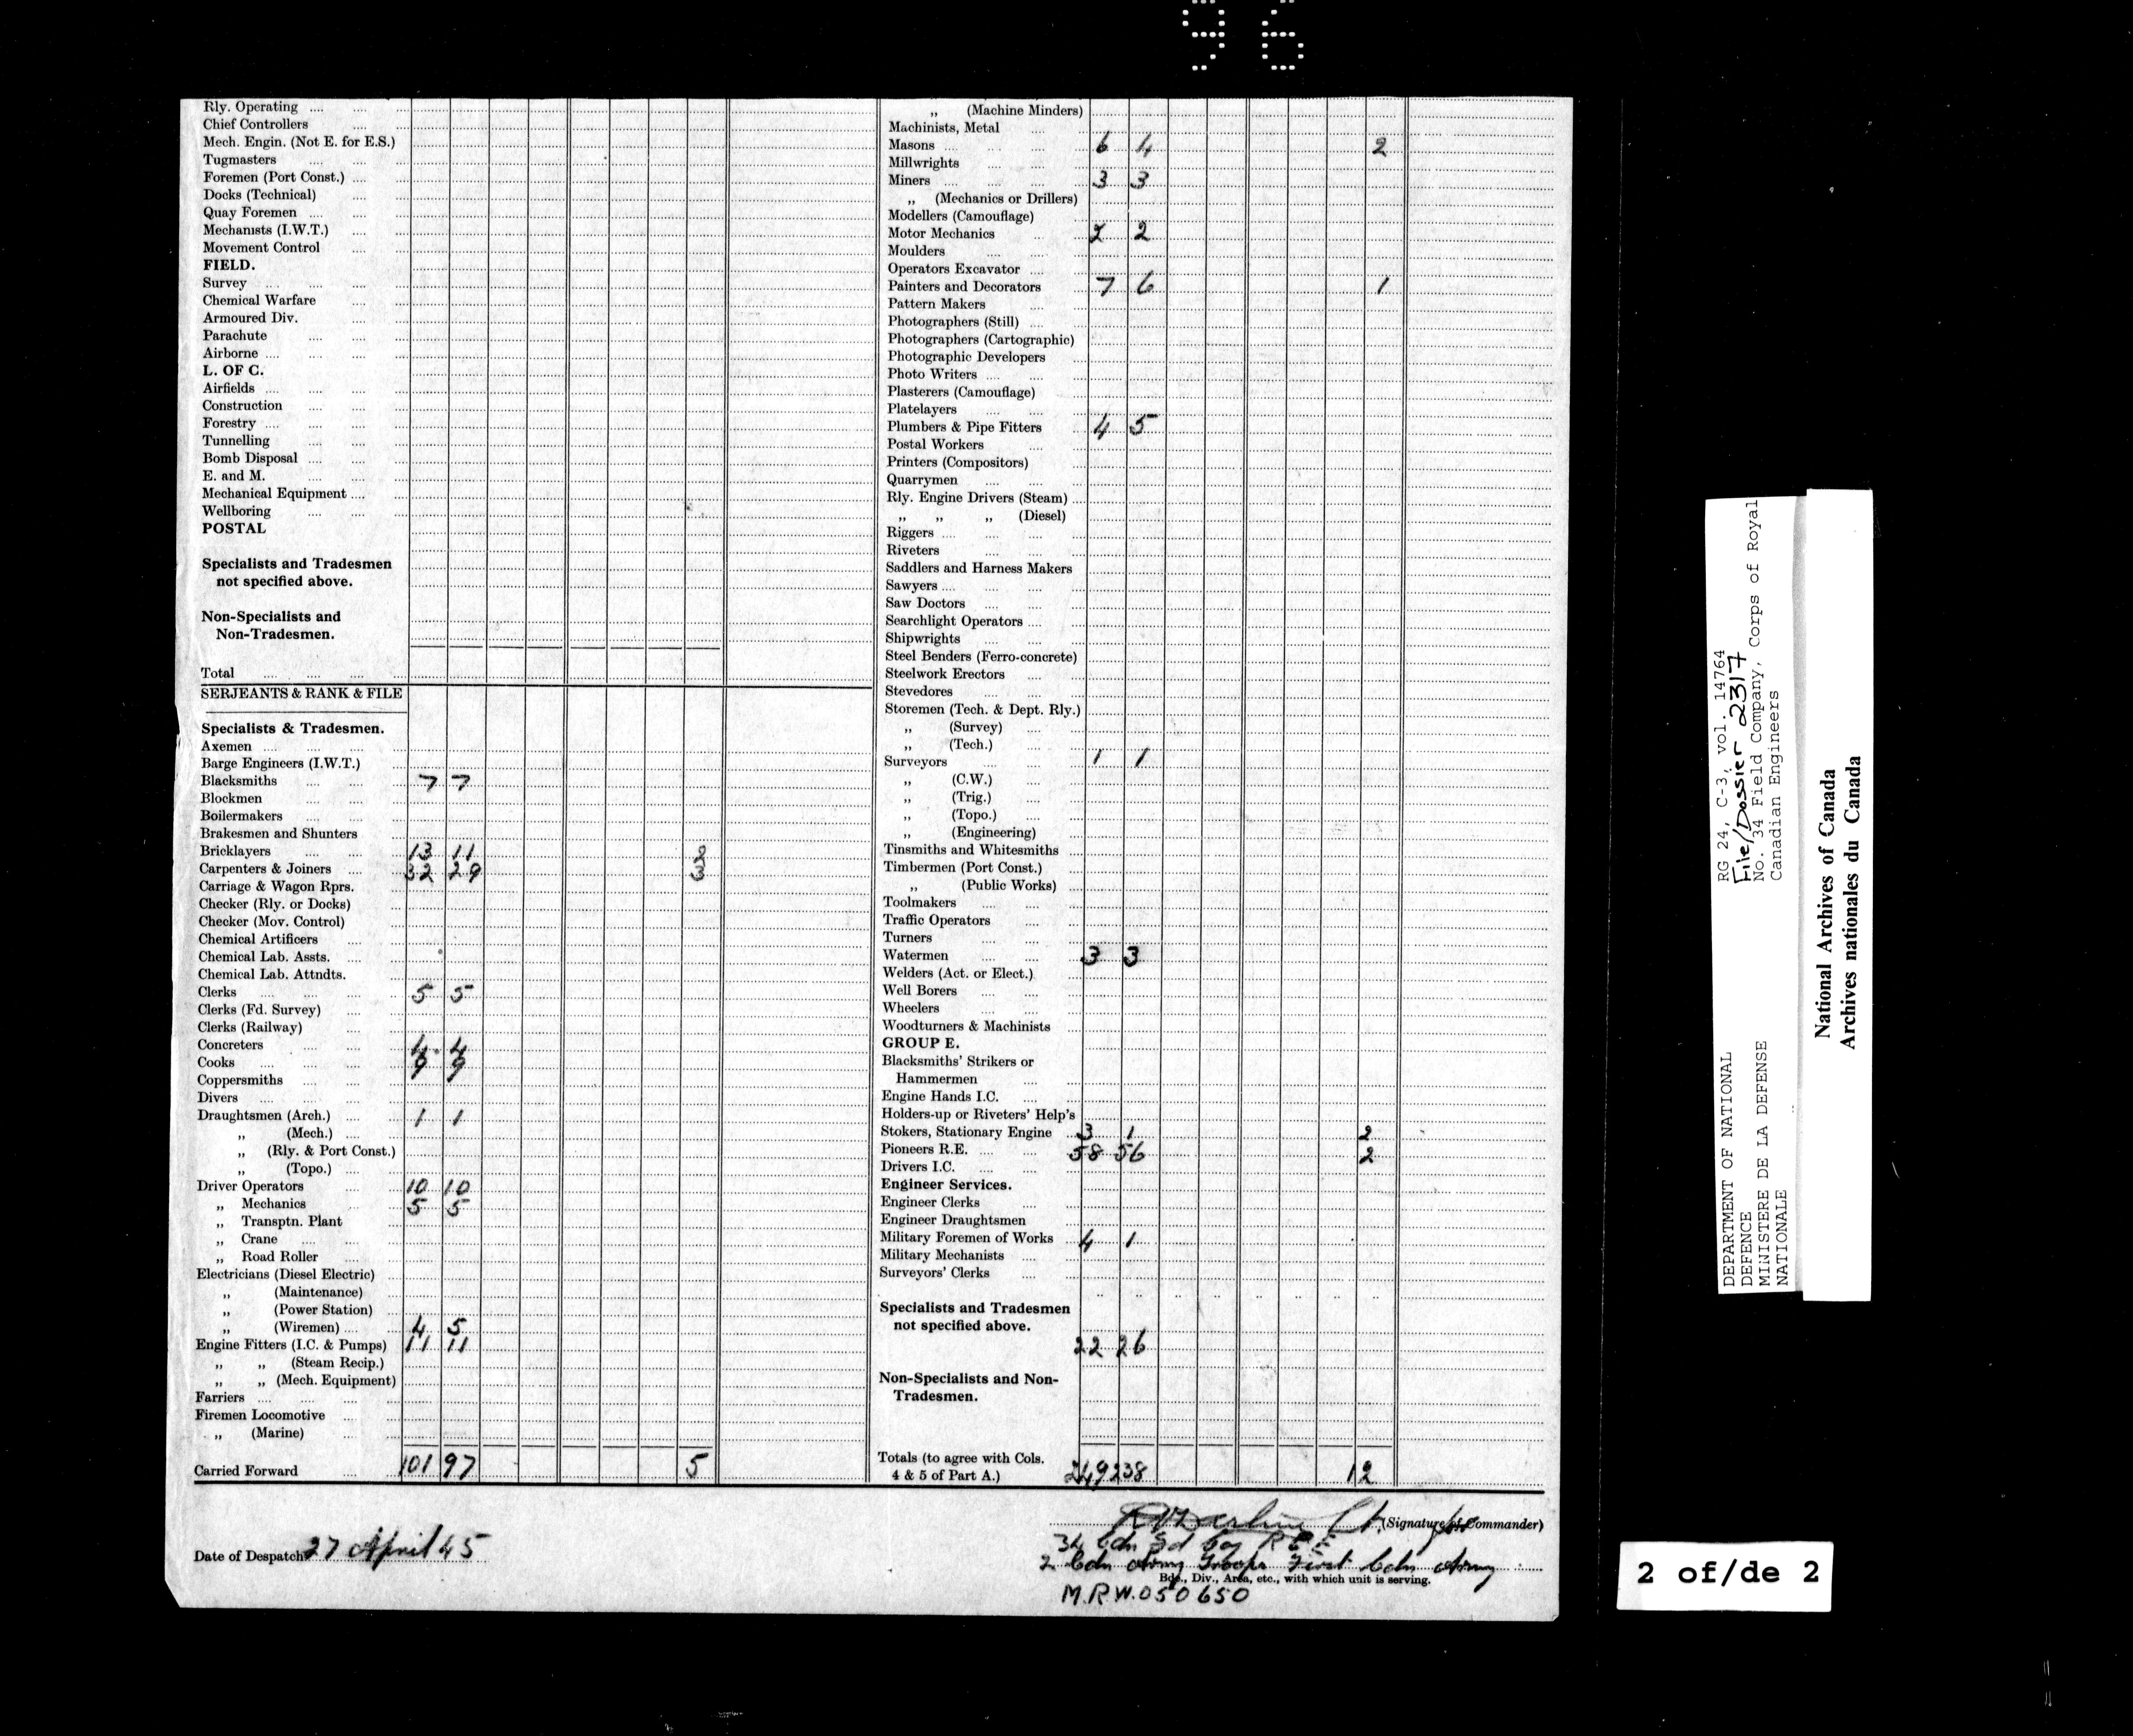 96
Rly. Operating .... ....
Chief Controllers ....
Mech. Engin. (Not E. for E.S.)
Tugmasters .... ....
Foremen (Port Const.) ....
Docks (Technical) ....
Quay Foremen .... ....
Mechanists (I.W.T.) ....
Movement Control ....
FIELD.
Survey .... .... ....
Chemical Warfare ....
Armoured Div. ....
Parachute .... ....
Airborne .... .... ....
L. OF C.
Airfields .... .... ....
Construction .... ....
Forestry .... .... ....
Tunnelling .... ....
Bomb Disposal .... ....
E. and M. .... ....
Mechanical Equipment .... ....
Wellboring .... ....
POSTAL
Specialists and Tradesmen
not specified above.
Non-Specialists and
Non-Tradesmen.
Total .... .... ....
SERJEANTS & RANK & FILE
Specialists & Tradesmen.
Axemen .... .... ....
Barge Engineers (I.W.T.)
Blacksmiths .... .... 7 7
Blockmen .... ....
Boilermakers .... ....
Brakesmen and Shunters
Bricklayers .... .... 13 11
Carpenters & Joiners .... 32 29 3
Carriage & Wagon Rprs.
Checker (Rly. or Docks)
Checker (Mov. Control)
Chemical Artificers ....
Chemical Lab. Assts. ....
Chemical Lab. Attndts.
Clerks .... .... .... 5 5
Clerks (Fd. Survey) ....
Clerks (Railway) ....
Concreters .... .... 4 4
Cooks .... .... .... 9 9
Coppersmiths .... ....
Divers .... .... ....
Draughtsmen (Arch.) .... 1 1
„ (Mech.) ....
„ (Rly. & Port Const.)
„ (Topo.) ....
Driver Operators .... 10 10
„ Mechanics .... 5 5
„ Transptn. Plant
„ Crane .... ....
„ Road Roller ....
Electricians (Diesel Electric)
„ (Maintenance)
„ (Power Station)
„ (Wiremen) .... 4 5
Engine Fitters (I.C. & Pumps) 11 11
„ „ (Steam Recip.)
„ „ (Mech. Equipment)
Farriers .... .... ....
Firemen Locomotive ....
„ (Marine) ....
Carried Forward .... 101 97 5
„ (Machine Minders)
Machinists, Metal ....
Masons .... .... .... 6 4 2
Millwrights .... ....
Miners .... .... .... 3 3
„ (Mechanics or Drillers)
Modellers (Camouflage)
Motor Mechanics .... 2 2
Moulders .... ....
Operators Excavator ....
Painters and Decorators 7 6 1
Pattern Makers ....
Photographers (Still) ....
Photographers (Cartographic)
Photographic Developers
Photo Writers .... ....
Plasterers (Camouflage)
Platelayers .... ....
Plumbers & Pipe Fitters 4 5
Postal Workers ....
Printers (Compositors)
Quarrymen .... ....
Rly. Engine Drivers (Steam) ....
„ „ „ (Diesel)
Riggers .... .... ....
Riveters .... ....
Saddlers and Harness Makers
Sawyers .... .... ....
Saw Doctors .... ....
Searchlight Operators ....
Shipwrights .... ....
Steel Benders (Ferro-concrete)
Steelwork Erectors ....
Stevedores .... ....
Storemen (Tech. & Dept. Rly.)
„ (Survey) ....
„ (Tech.) ....
Surveyors .... .... 1 1
„ (C.W.) ....
„ (Trig.) ....
„ (Topo.) ....
„ (Engineering)
Tinsmiths and Whitesmiths
Timbermen (Port Const.)
„ (Public Works) ....
Toolmakers .... ....
Traffic Operators ....
Turners .... ....
Watermen .... .... 3 3
Welders (Act. or Elect.)
Well Borers .... ....
Wheelers .... ....
Woodturners & Machinists
GROUP E.
Blacksmiths' Strikers or
Hammermen ....
Engine Hands I.C. ....
Holders-up or Riveters' Help's
Stokers, Stationary Engine .. 3 1 2
Pioneers R.E. .... .... 58 56 2
Drivers I.C. .... ....
Engineer Services.
Engineer Clerks ....
Engineer Draughtsmen
Military Foremen of Works 4 1
Military Mechanists ....
Surveyors' Clerks ....
Specialists and Tradesmen
not specified above.
22 26
Non-Specialists and Non-
Tradesmen.
Totals (to agree with Cols.
4 & 5 of Part A.) 249 238 12
Date of Despatch 27 April 45
(Signature of Commander)
34 Cdn Fd Coy R C E
2 Cdn Army Troops First Cdn Army
Bde., Div., Area, etc., with which unit is serving.
M.R.W.050650
RG 24, C-3, vol. 14764
File/Dossier 2317
No. 34 Field Company, Corps of Royal
Canadian Engineers
DEPARTMENT OF NATIONAL
DEFENCE
MINISTERE DE LA DEFENSE
NATIONALE
National Archives of Canada
Archives nationales du Canada
2 of/de 2